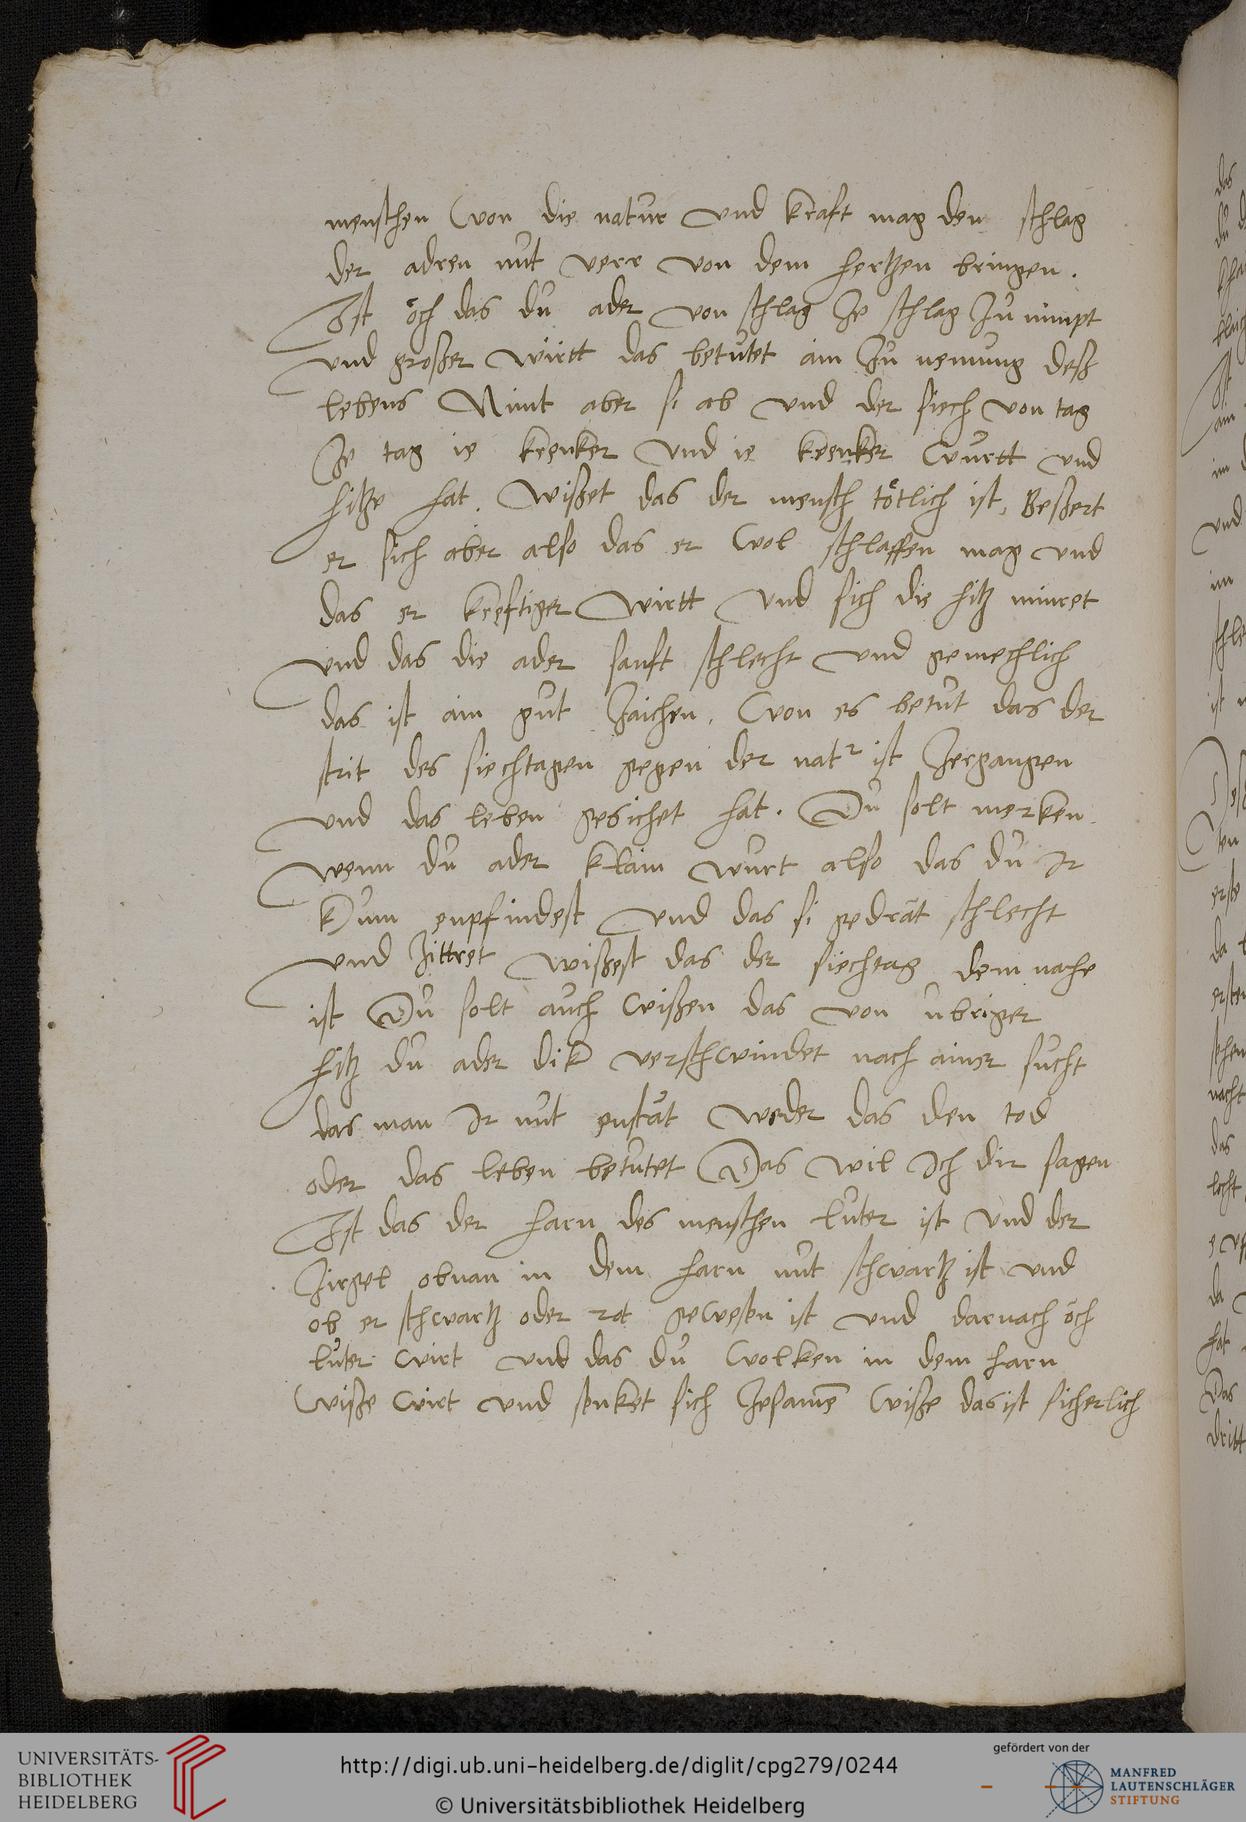 menschen won die natur und kraft mag den schlag
der adren nüt verr von dem hertzen bringen.
Ist öch das dü ader von schlag ze schlag zü nimpt
und großer wirtt das betütet ain zü nemung deß
lebens Nimt aber si ab und der siech von tag
ze tag ie krenker und ie krenker württ und
hitze hat. wißet das der mensch tötlich ist, Beßert
er sich aber also das er wol schlaffen mag und
das er kreftiger wirtt und sich die hitz minret
und das die ader sanft schlecht und gemechlich
das ist ain güt zaichen. won es betüt das der
strit des siechtagen gegen der natr ist zergangen
und das leben gesichet hat. Dü solt merken
wenn dü ader klain würt also das dü ir
kum enpfindest und das si gedrät schlecht
und zittret wißest das der siechtag dem nahe
ist Dü solt auch wißen das von übriger
hitz dü ader dik verschwindet nach ainer sücht
das man ir nüt enstät weder das den tod
oder das leben betütet Das wil ich dir sagen
Ist das der harn des menschen lüter ist und der
zirgel obnan in dem harn nüt schwartz ist und
ob er schwartz oder rot gewesen ist und darnach öch
lüter wirt und das dü wolken in dem harn
wiße wirt und senket sich zesamē wiße das ist sicherlich
UNIVERSITÄTS-
BIBLIOTHEK
HEIDELBERG
http://digi.ub.uni-heidelberg.de/diglit/cpg279/0244
© Universitätsbibliothek Heidelberg
gefördert von der
MANFRED
LAUTENSCHLÄGER
STIFTUNG